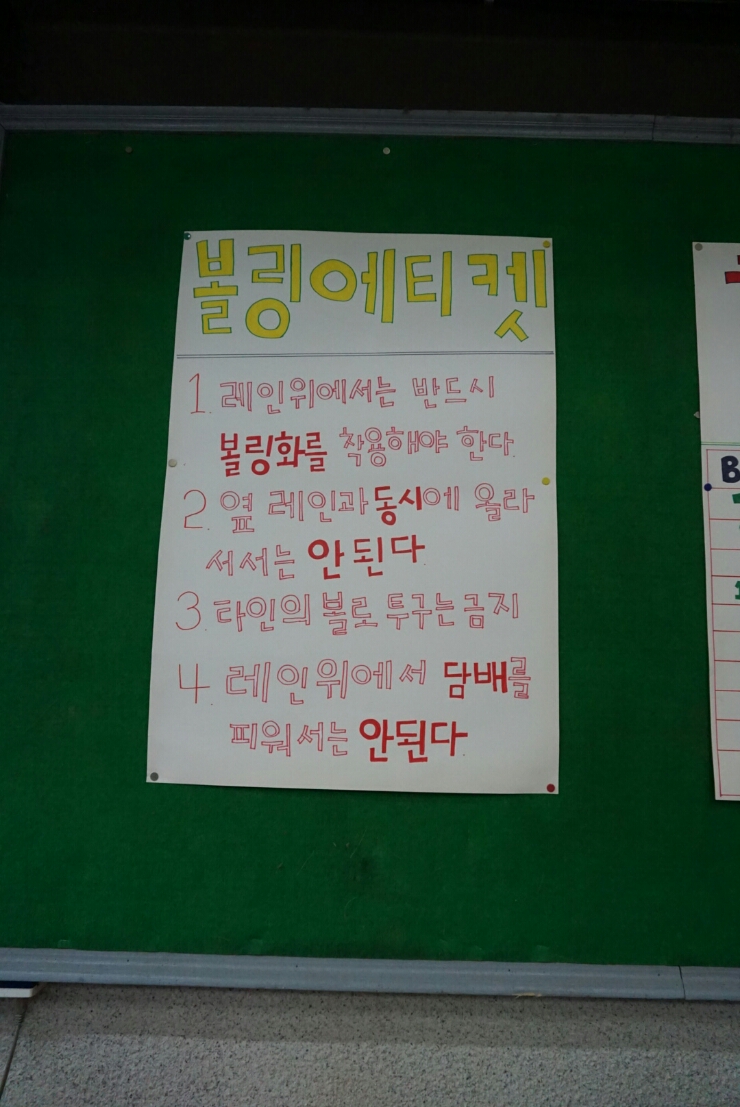 볼링에티켓
1. 레인위에서는 반드시
볼링화를 착용해야 한다.
2. 옆 레인과 동시에 올라
서서는 안된다
3 타인의 볼로 투구는 금지
4 레인위에서 담배를
피워서는 안된다
B